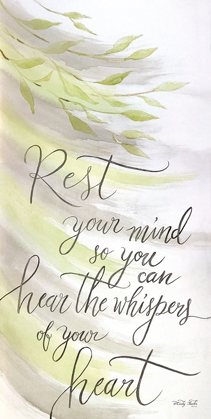 Rest
your mind
so you
can
hear the whispers
of your
heart